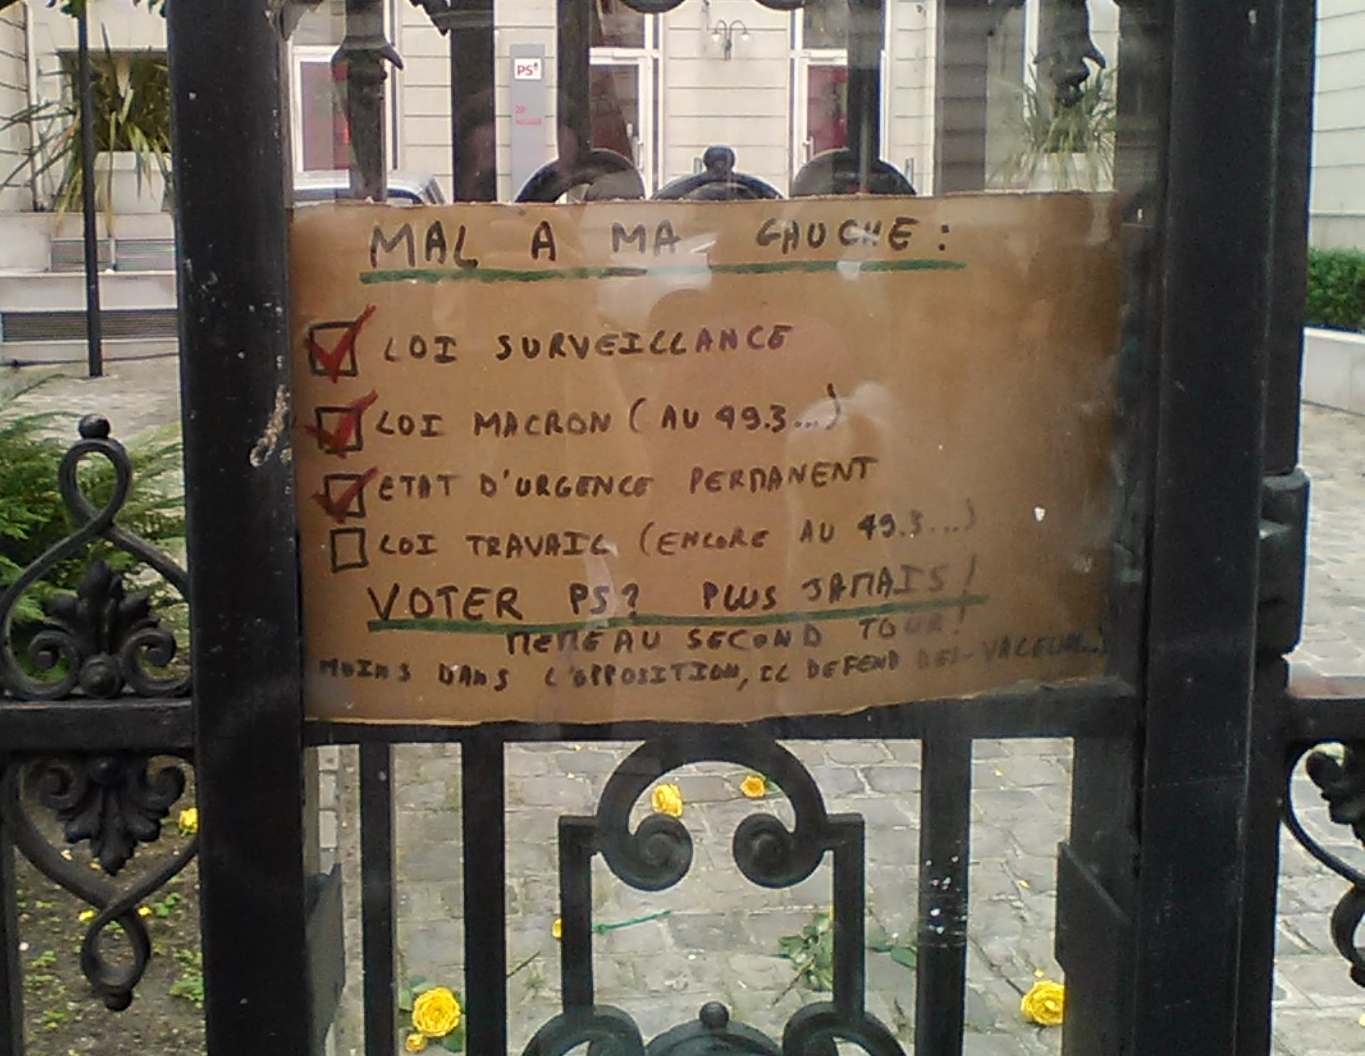 PS
MAL A MA GAUCHE :
LOI SURVEILLANCE
LOI MACRON ( AU 49.3...)
ETAT D'URGENCE PERMANENT
LOI TRAVAIL (ENCORE AU 49.3....)
VOTER PS? PLUS JAMAIS!
MEME AU SECOND TOUR!
MOINS DANS L'OPPOSITION, IL DEFEND DES VALEURS...)